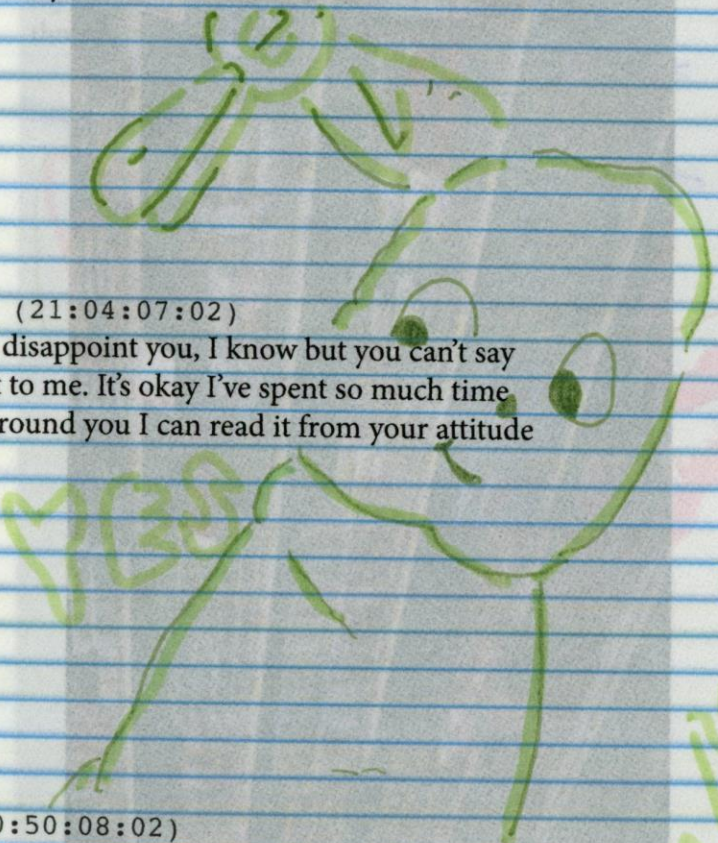 (21:04:07:02)
disappoint you, I know but you can't say
to me. It's okay I've spent so much time
round you I can read it from your attitude
YES
:50:08:02)